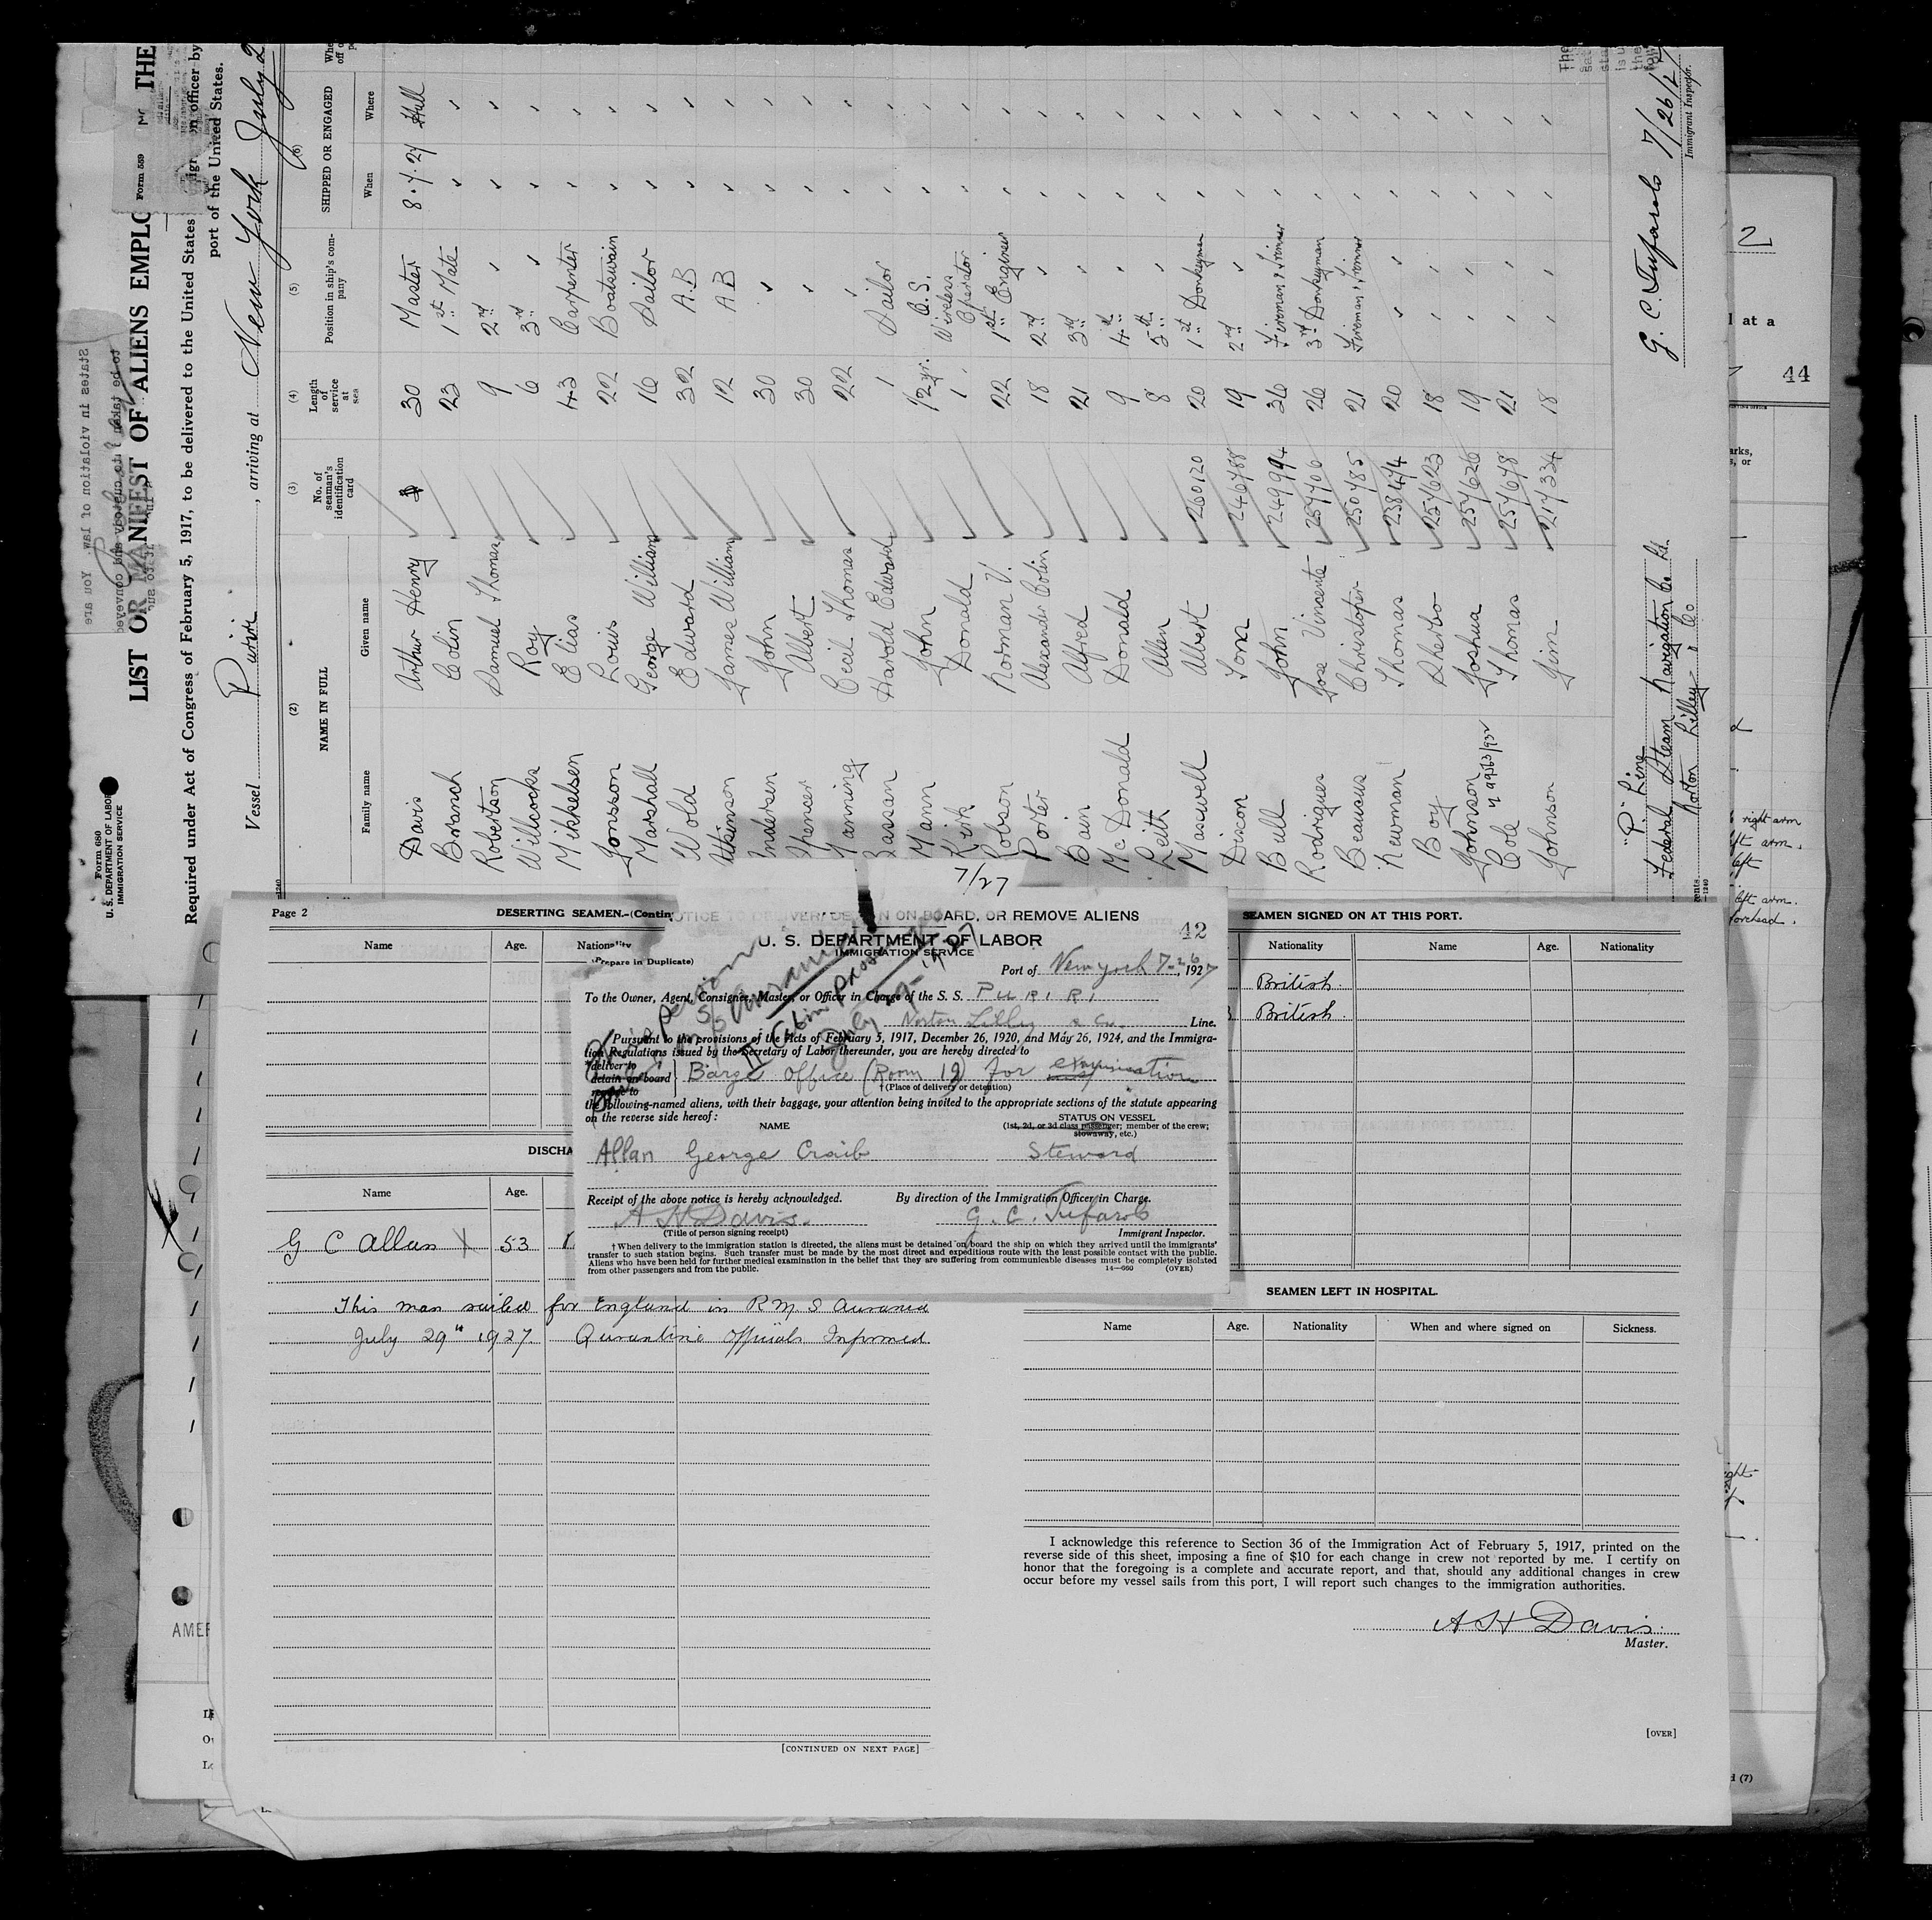 Form 680
U. S. DEPARTMENT OF LABOR
IMMIGRATION SERVICE
Form 559
LIST OR MANIFEST OF ALIENS EMPLO
THE
Required under Act of Congress of February 5, 1917, to be delivered to the United States
officer by
port of the United States.
Vessel Puriri, arriving at New York July 2
(2)
(3)
(4)
(5)
(6)
NAME IN FULL
Family name
Given name
No. of seaman's identification card
Length of service at sea
Position in ship's company
SHIPPED OR ENGAGED
When
Where
Davis Arthur Henry 30 Master 8.7.27 Hull
Branch Colin 23 1st Mate
Robertson Samuel Thomas 9 2nd
Willcocks Roy 6 3rd
Mikkelsen Elias 43 Carpenter
Jonsson Louis 22 Boatswain
Marshall George William 16 Sailor
Wold Edward 32 A.B
Atkinson James William 12 A B
Andersen John 30
Spencer Albert 30
Manning Cecil Thomas 22
Harold Edward 1 Sailor
Mann John 1/2 yr. O.S.
Kirk Donald 1 Wireless Operator
Robson Norman V. 22 1st Engineer
Porter Alexander Colin 18 2nd
Bain Alfred 21 3rd
Mc Donald Donald 9 4th
Leith Allen 8 5th
Maxwell Albert 260120 20 1st Donkeyman
Discon Tom 246788 19 2nd
Bull John 249994 36 Fireman & Trimmer
Rodrigues Jose Vincente 257706 26 3rd Donkeyman
Beaucus Christofer 250785 21 Fireman & Trimmer
Newman Thomas 238474 20
Boy Sherbo 257623 18
Johnson Joshua 257626 19
Cole Thomas 257678 21
Johnson Jim 217334 18
"P" Line
Federal Steam Navigation Co Ld.
Norton Lilley & Co
G. C. Tufarolo 7/26/27
Immigrant Inspector.
Page 2
DESERTING SEAMEN.-(Contin
Name
Age.
Nationality
DISCHA
Name
Age.
G C Allan X 53
This man sailed for England in R M S Aurania
July 29th 1927. Qurantine Officials Informed
[CONTINUED ON NEXT PAGE]
7/27
NOTICE TO DELIVER, DETAIN ON BOARD, OR REMOVE ALIENS
42
U. S. DEPARTMENT OF LABOR
IMMIGRATION SERVICE
(Prepare in Duplicate)
Port of New York 7-26, 1927
To the Owner, Agent, Consignee, Master, or Officer in Charge of the S. S. PURIRI
Norton Lilley & Co. Line.
Pursuant to the provisions of the Acts of February 5, 1917, December 26, 1920, and May 26, 1924, and the Immigra-
tion Regulations issued by the Secretary of Labor thereunder, you are hereby directed to
*deliver to
detain on board
remove to
Barge Office (Room 19) for examination
†(Place of delivery or detention)
the following-named aliens, with their baggage, your attention being invited to the appropriate sections of the statute appearing
on the reverse side hereof:
NAME
STATUS ON VESSEL
(1st, 2d, or 3d class passenger; member of the crew;
stowaway, etc.)
Allan George Craib Steward
Receipt of the above notice is hereby acknowledged.
By direction of the Immigration Officer in Charge.
A H Davis.
G. C. Tufarolo
(Title of person signing receipt)
Immigrant Inspector.
† When delivery to the immigration station is directed, the aliens must be detained on board the ship on which they arrived until the immigrants'
transfer to such station begins. Such transfer must be made by the most direct and expeditious route with the least possible contact with the public.
Aliens who have been held for further medical examination in the belief that they are suffering from communicable diseases must be completely isolated
from other passengers and from the public.
14—660
(OVER)
SEAMEN SIGNED ON AT THIS PORT.
Nationality
Name
Age.
Nationality
British.
British.
SEAMEN LEFT IN HOSPITAL.
Name
Age.
Nationality
When and where signed on
Sickness.
I acknowledge this reference to Section 36 of the Immigration Act of February 5, 1917, printed on the
reverse side of this sheet, imposing a fine of $10 for each change in crew not reported by me. I certify on
honor that the foregoing is a complete and accurate report, and that, should any additional changes in crew
occur before my vessel sails from this port, I will report such changes to the immigration authorities.
A H Davis.
Master.
[OVER]
2
at a
44
right arm
left arm.
forehead.
AMER
(7)